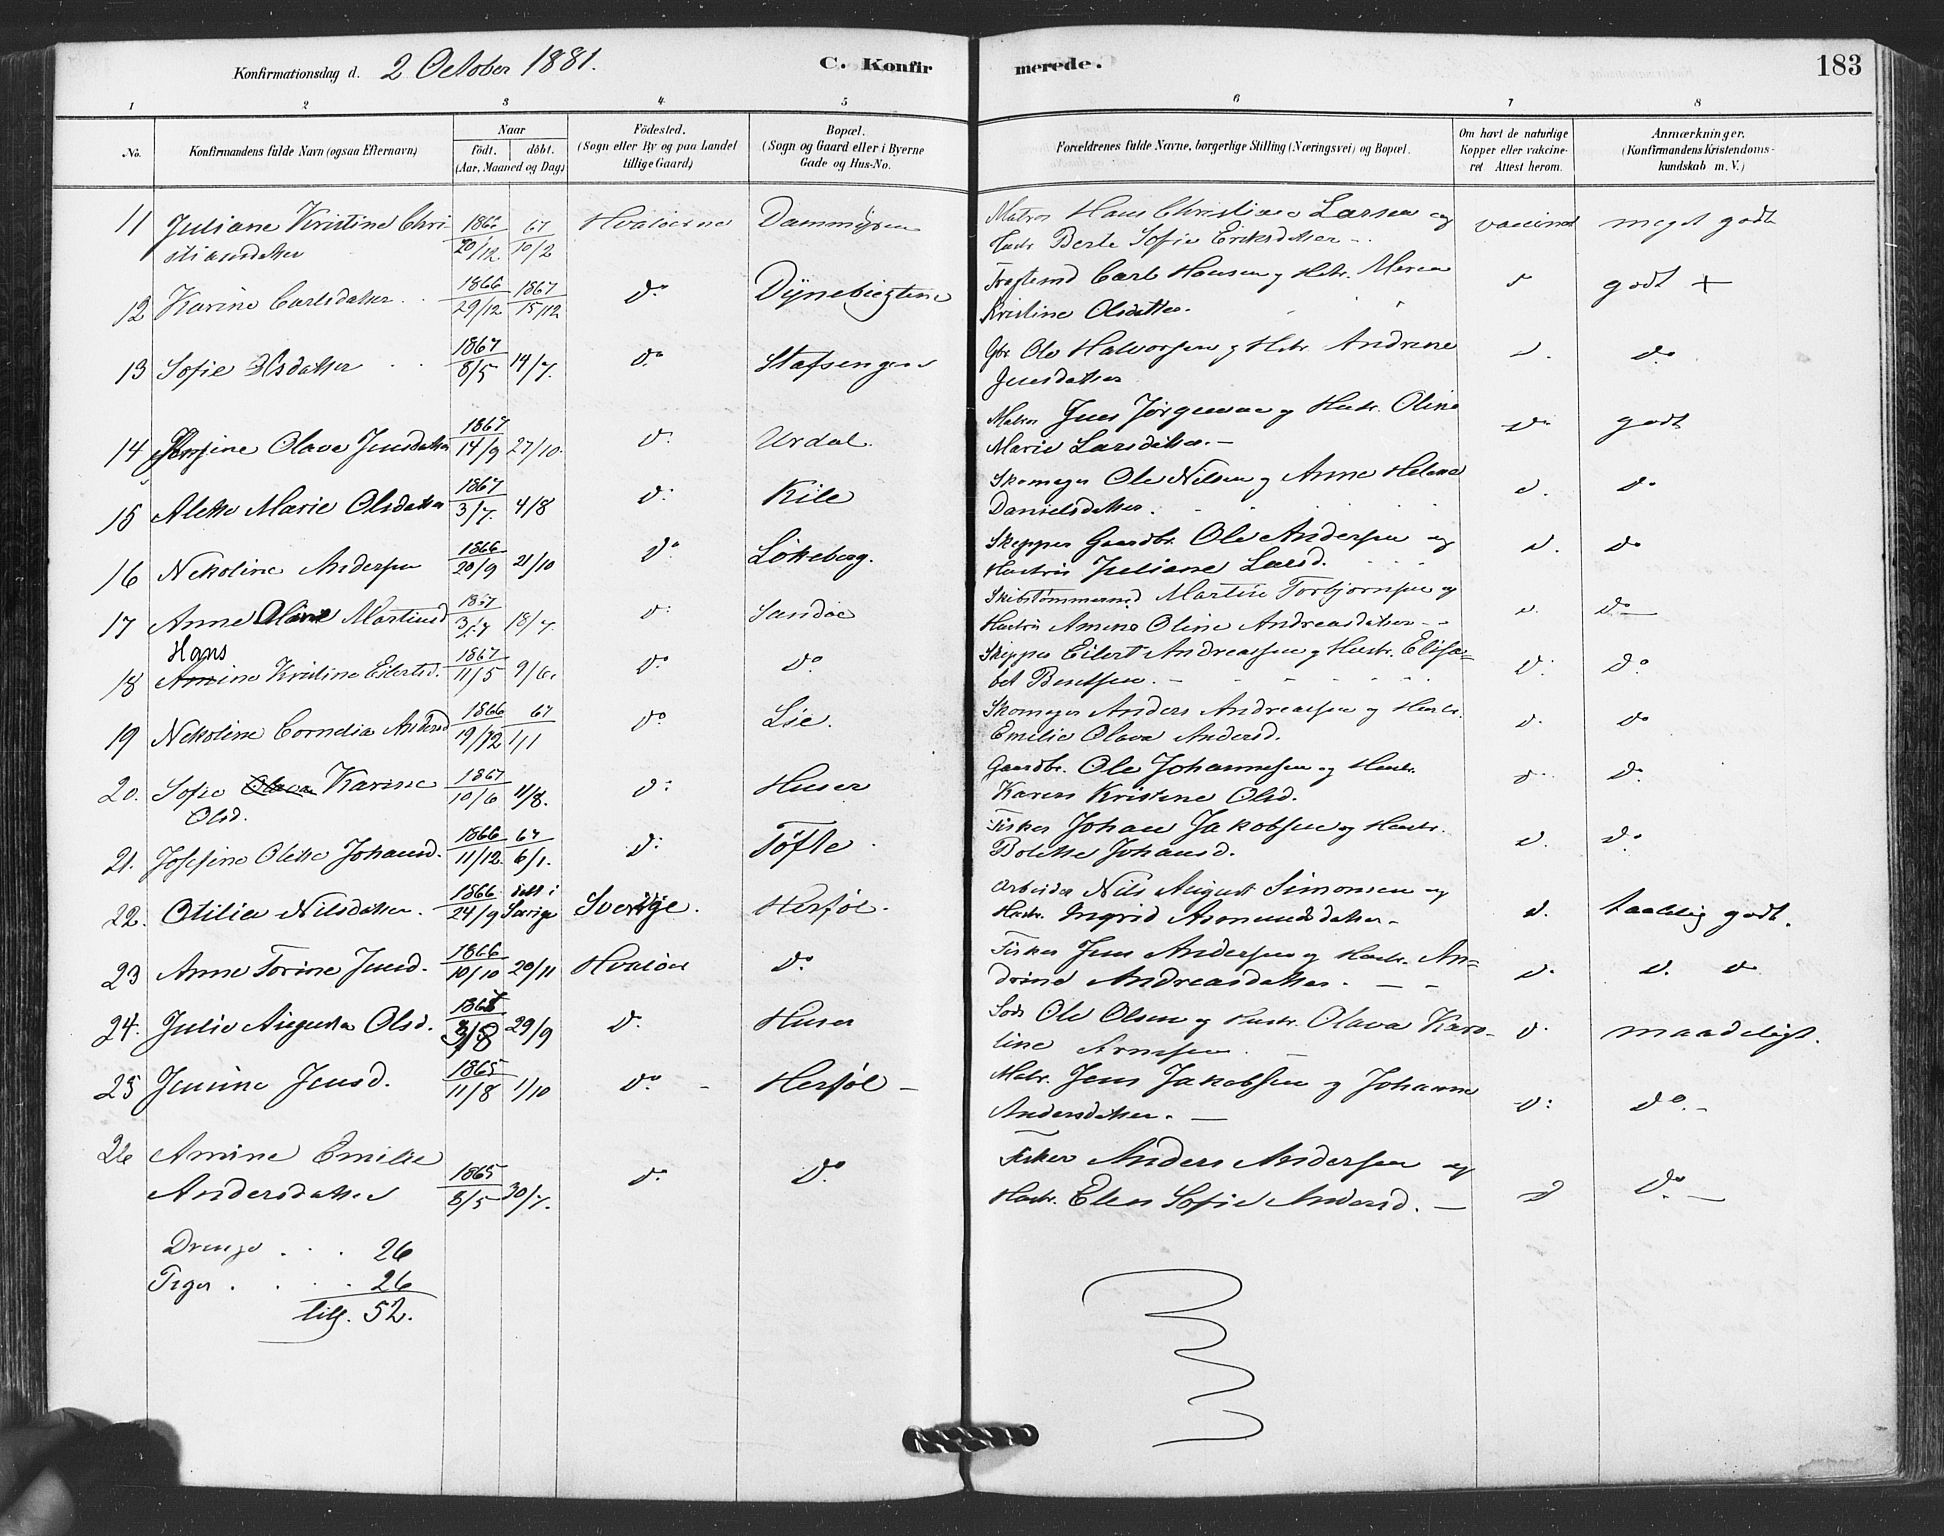 Konfirmationsdag d. 2 October 1881. C. Konfir merede. 183
1 2 3 4 5 6 7 8
No. Konfirmandens fulde Navn (ogsaa Efternavn) Naar født. døbt. (Aar, Maaned og Dag) Fødested. (Sogn eller By og paa Landet tillige Gaard) Bopæl. (Sogn og Gaard eller i Byerne Gade og Hus-No. Forældrenes fulde Navne, borgerlige Stilling (Næringsvei) og Bopæl. Om havt de naturlige Kopper eller vakcineret Attest herom. Anmærkninger. (Konfirmandens Kristendomskundskab m. V.)
11 Juliane Kristine Chri 1866 20/12 67 10/2 Hvaløerne Dammyren Matros Hans Christian Larsen og vaccinet meget godt
stiansdatter Hustr Berte Sofie Eriksdatter
12 Karine Carlsdatter 1866 29/12 1867 15/12 do Dynebugtene Carl Hansen og Hstr. Maren godt +
Kristine Olsdatter.
13 Sofie Olsdatter 1867 8/5 14/7. do Stafsengen Gbr. Ole Halvorsen og Hstr. Andrine d. do
Jensdatter
14 Olava Jensdatter 1867 14/9 27/10. do Urdal. Matros Jens Jørgensen og Hustr. Oline do godt
Marie Larsdatter. —
15 Alette Marie Olsdatter 1867 3/7. 4/8 do Kile Skomager Ole Nilsen og Anne Helene d. do
Danielsdatter.
16 Nekoline Andersen 1866 20/9 21/10 do Løkeberg. Skipper Gaardbr. Ole Andersen og d. do
Hustru Juliane Larsd.
17 Anne Oline Martinsd 1867 3/7 18/7. do Sandøe Skibstømmermd Martin Torbjørnsen og d. do
Hustru Amine Oline Andreasdatter - -
Hans
18 Amine Kristine Eilertsd. 1867 11/5 9/6. do do Skipper Eilert Andreassen og Hustr. Elisa= d. do
bet Berntsen. —
19 Nekoline Cornelia Andersd 1866 19/12 67 1/1 do Lie. Skomager Anders Andreassen og Hustr. d. do
Emilie Olava Andersd.
20. Sofie Olava Karine 1867 10/6 11/8. do Huser Gaardbr. Ole Johannesen og Hustr. d. do
Olsd. Karen Kristine Olsd.
21. Josefine Olette Johansd. 1866 11/12. 67 6/1. do Tøfte Fisker Johan Jakobsen og Hustr. d. do
Bolette Johansd.
22. Otilia Nilsdatter. 1866 24/9 døbt i Sverige Sverige. Herføl. Arbeider Nils August Simonsen og d. taalelig godt.
Hustr. Ingrid Asmundsdatter —
23 Anne Torine Jensd. 1866 10/10 20/11 Hvaløer do Fisker Jens Andersen og Hustr. An= d. d. do
drine Andreasdatter. — -
24. Julie Augusta Olsd. 1867 3/8 29/9 do Huser Ole Olsen og Hustr. Olava Karo- d. maadeligt.
line Arnesen —
25 Jensine Jensd. 1865 11/8 1/10 do - Herføl — Matr. Jens Jakobsen og Johanne do do. -
Andersdatter. —
26 Amine Emilie Fisker Anders Andersen og
Andersdatter 1865 8/5 30/7. do do Hustr. Elen Sofie Andersd. — d do —
Drenge . . . 26
Piger . . . . 26
till. 52.